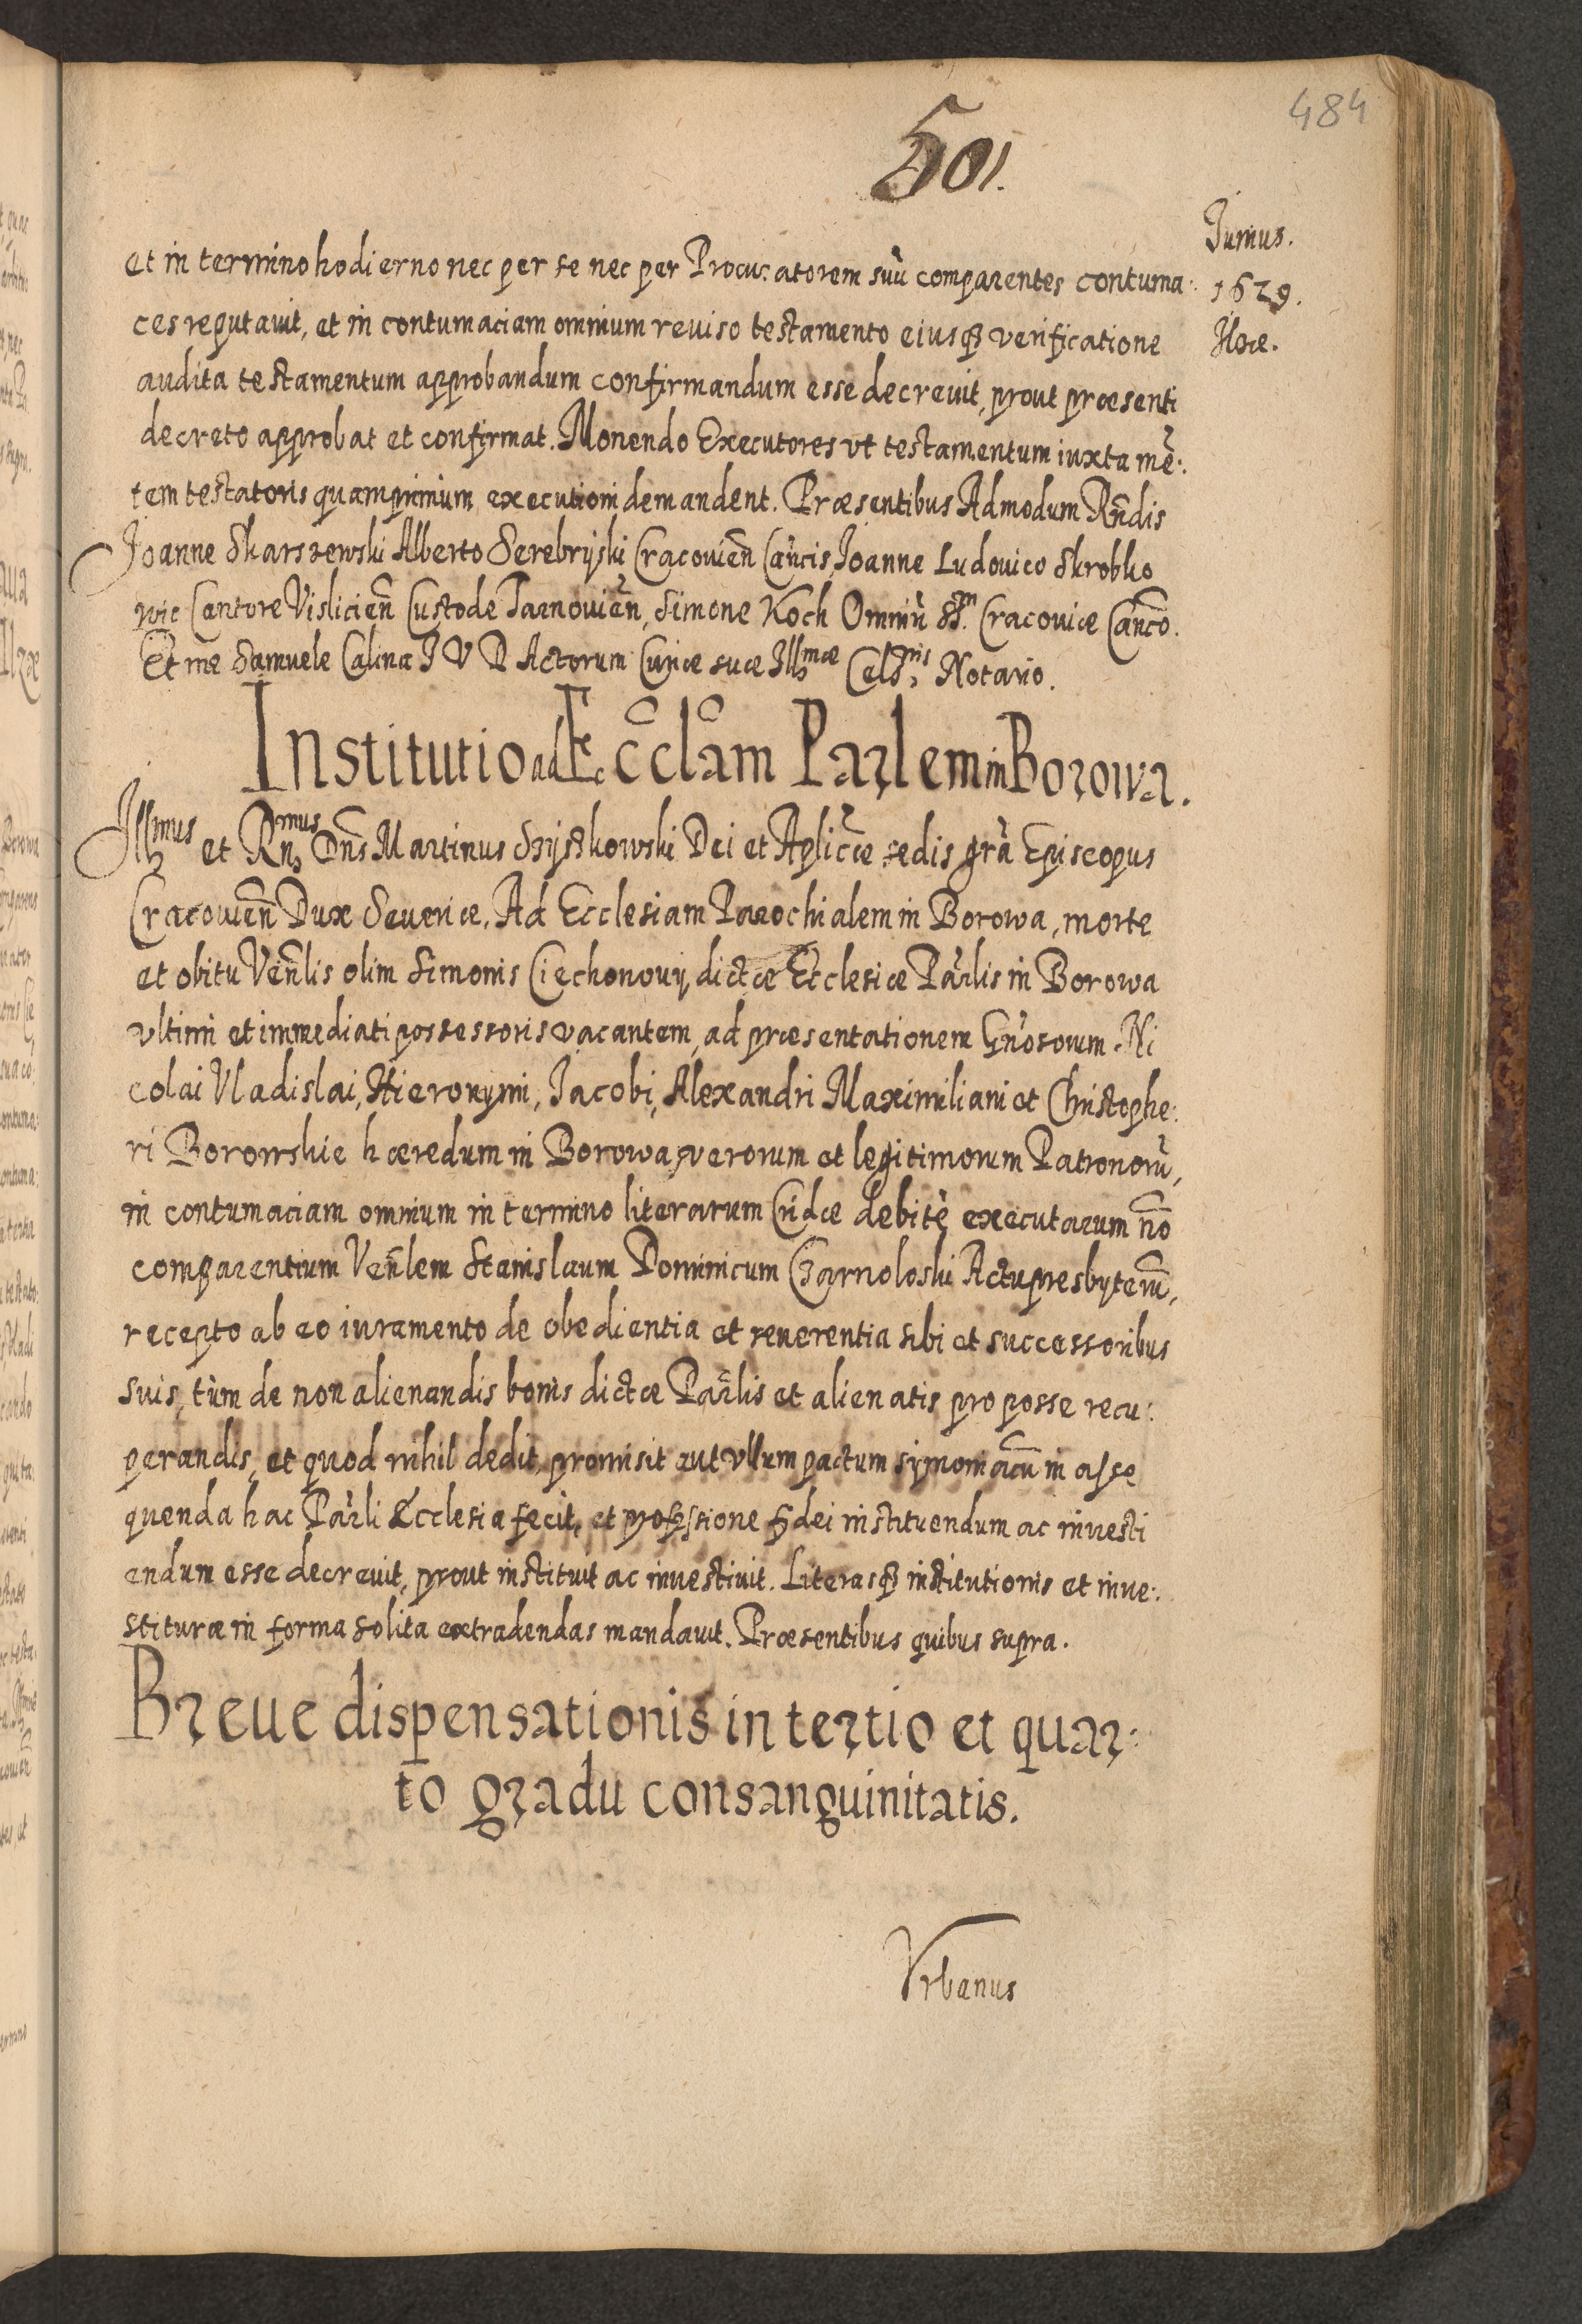 484
501.
Junius.
1629.
Ilzæ.
et in termino hodierno nec per se nec per Procuratorem suũ comparentes contuma:
ces reputavit, et in contumaciam omnium reuiso testamento eiusq3 verificatione
audita testamentum approbandum confirmandum esse decreuit, prout præsenti
decreto approbat et confirmat. Monendo Executores vt testamentum iuxta mẽ:
tem testatoris quamprimum executioni demandent. Præsentibus Admodum Rñdis
Joanne Skarszewski Alberto Serebryski Cracouieñ Cañcis, Joanne Ludouico Skrobko
wic Cantore Vislicieñ Custode Tarnouieñ, Simone Koch Omniũ SSm. Cracouiæ Cañco.
Et me Samuele Calina J V D Actorum Curiæ suæ Illmæ Celsnis Notario.
Institutio ad Ecc̃lãm Parlem in Borowa.
Illmus et Rnmus Dñs Martinus Szyszkowski Dei et Aplicæ sedis grã Episcopus
Cracouieñ Dux Seueriæ, Ad Ecclesiam Parochialem in Borowa, morte
et obitu Veñlis olim Simonis Ciechonouij dictæ Ecclesiæ Pãrlis in Borowa
vltimi et immediati possessoris vacantem, ad præsentationem Gñosorum Ni
colai Vladislai, Hieronymi, Jacobi, Alexandri Maximiliani et Christophe:
ri Borowskie hæredum in Borowa, verorum et legitimorum Patronorũ,
in contumaciam omnium in termino literarum Cridæ debitè executarum nõ
comparentium Veñlem Stanislaum Dominicum Czarnoloski Actu presbyterũ,
recepto ab eo iuramento de obedientia et reuerentia sibi et successoribus
suis, tùm de non alienandis bonis dictæ Pãrlis et alienatis pro posse recu:
perandis, et quod nihil dedit, promisit aut vllum pactum symoniacũ in asse
quenda hac Pãrli Ecclesia fecit, et professione fidei instituendum ac inuesti
endum esse decreuit, prout instituit ac inuestiuit. Literasq3 institutionis et inue:
stituræ in forma solita extradendas mandauit. Præsentibus quibus supra.
Breue dispensationis in tertio et quar:
to gradu consanguinitatis.
Vrbanus